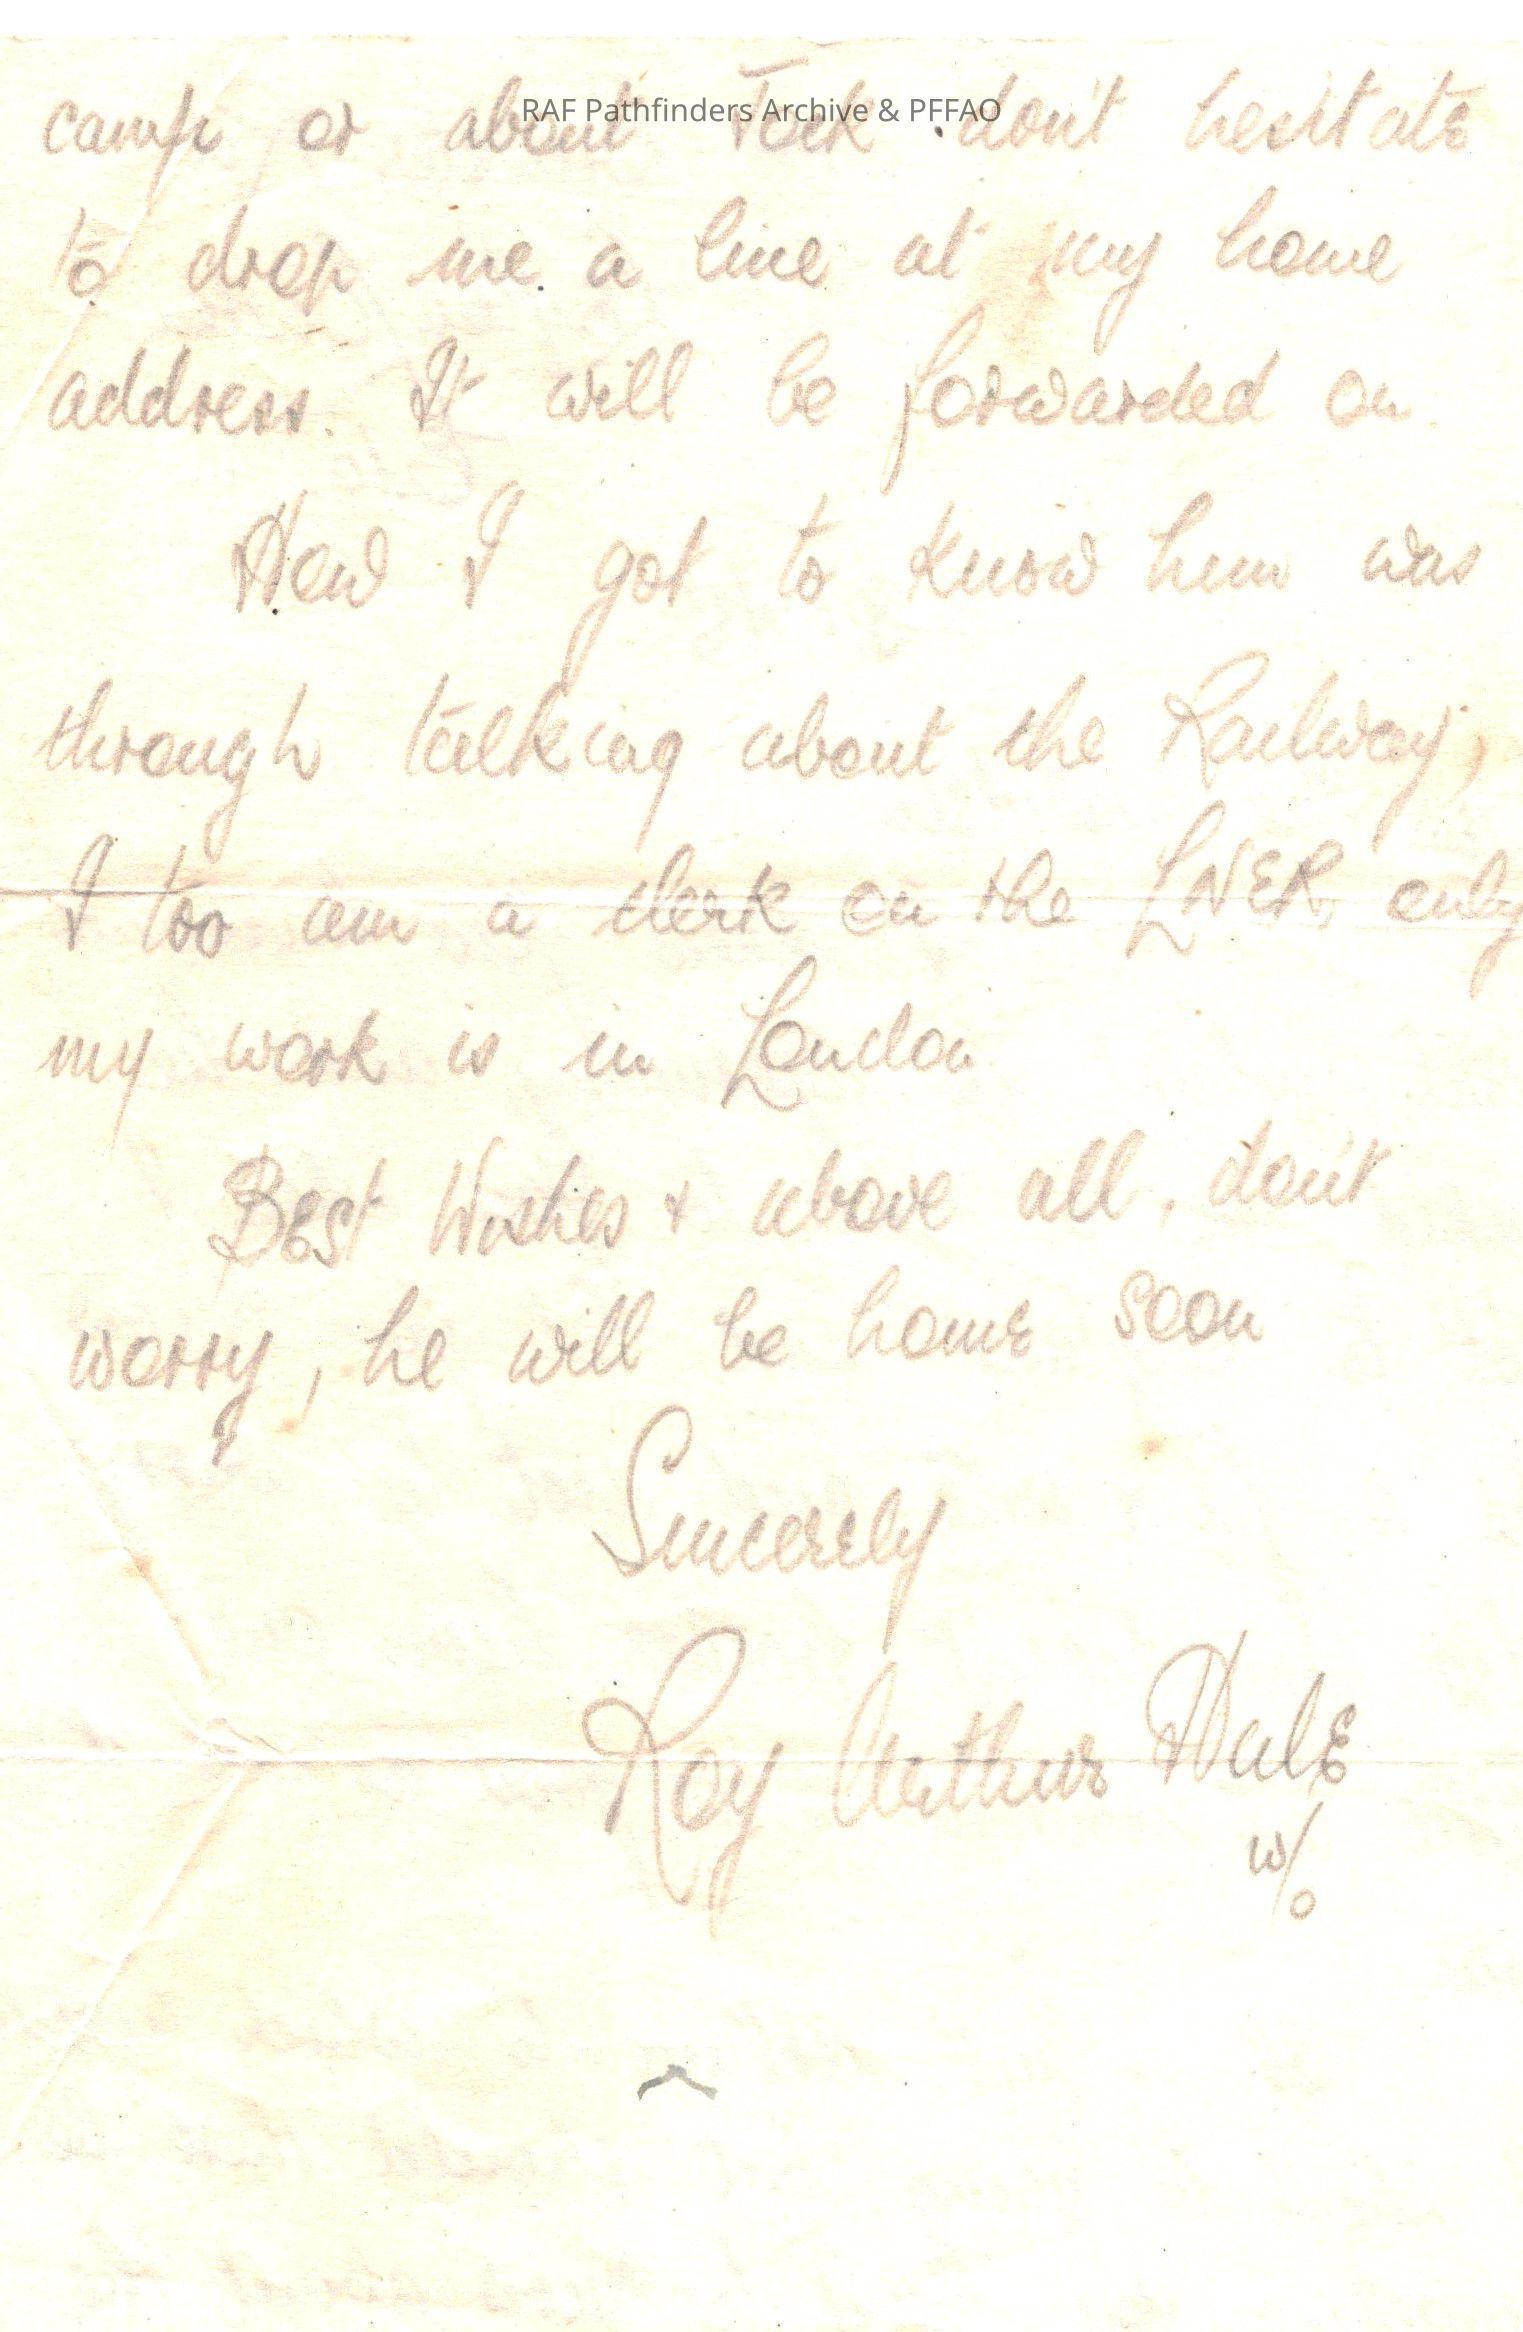 RAF Pathfinders Archive & PFFAO
camp or about Jock don't hesitate
to drop me a line at my home
address. It will be forwarded on.
How I got to know him was
through talking about the Railway,
I too am a clerk on the LNER, only
my work is in London
Best Wishes & above all, don't
worry, he will be home soon
Sincerely
Roy Arthur Hale
W/O